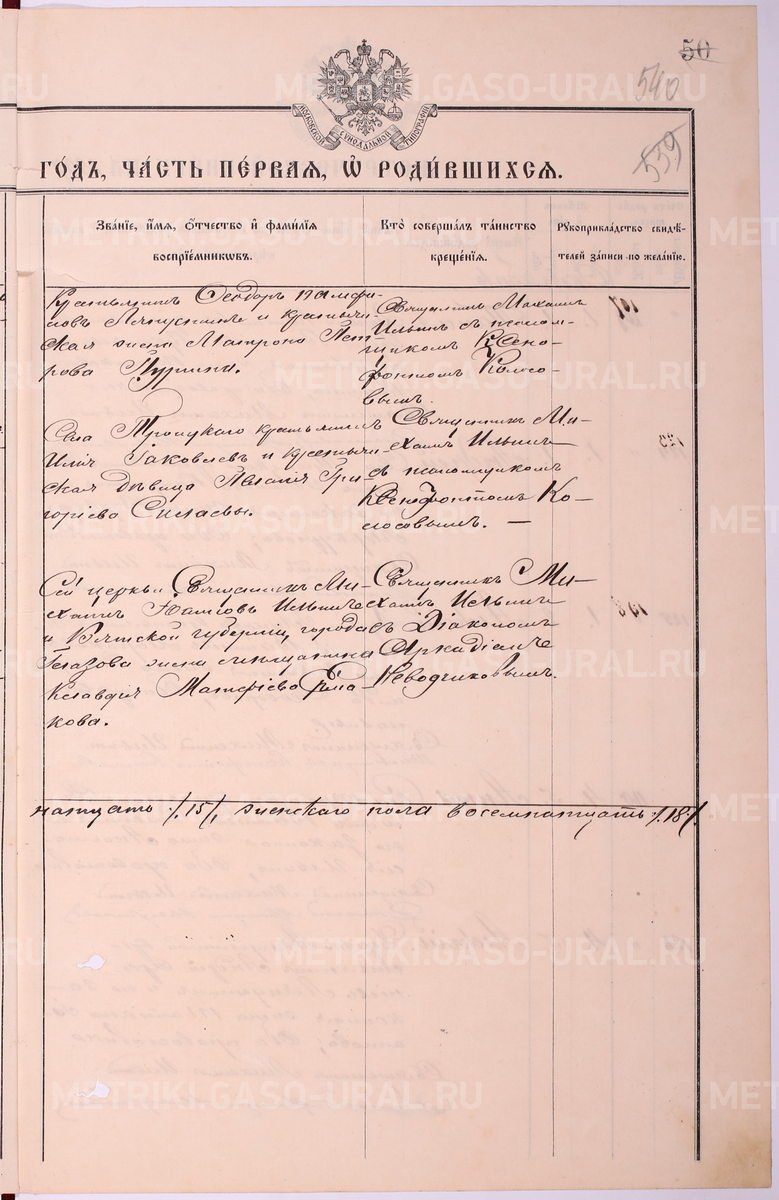 50
540
539
МОСКОВСКОЙ СѴНОДАЛЬНОЙ ТИПОГРАФІИ
ГО́ДЪ, ЧА́СТЬ ПЕ́РВАЯ, Ѿ РОДИ́ВШИХСѦ.
Зва́нїе, и҆́мѧ, ѻ҆́тчество и҆ фамі́лїѧ
воспрїе́мникѡвъ.
Кто̀ соверша́лъ та́инство
креще́нїѧ.
Рꙋкоприкла́дство свидѣ́-
телей за́писи по жела́нїю.
Крестьянинъ Ѳеодоръ Памфи-
ловъ и крестьян-
ская жена Матрона Пет-
рова
Священникъ Михаилъ
Ильинъ съ псалом-
щикомъ Ксено-
фонтомъ Колосо-
вымъ.
Села Троицкаго крестьянинъ
Илія Іаковлевъ и крестьян-
ская дѣвица Гри-
горіева
Священникъ Ми-
хаилъ Ильинъ
съ псаломщикомъ
Ксенофонтомъ Ко-
лосовымъ. —
Сей церкви Священникъ Ми-
хаилъ Ильинъ
и Вятской губерніи, города
Глазова жена мѣщанина
Клавдія Матѳіева
кова.
Священникъ Ми-
хаилъ Ильинъ
съ Діакономъ
Аркадіемъ
Неводчиковымъ.
натцать /.15/, женскаго пола восемнатцать /.18./.
METRIKI.GASO-URAL.RU